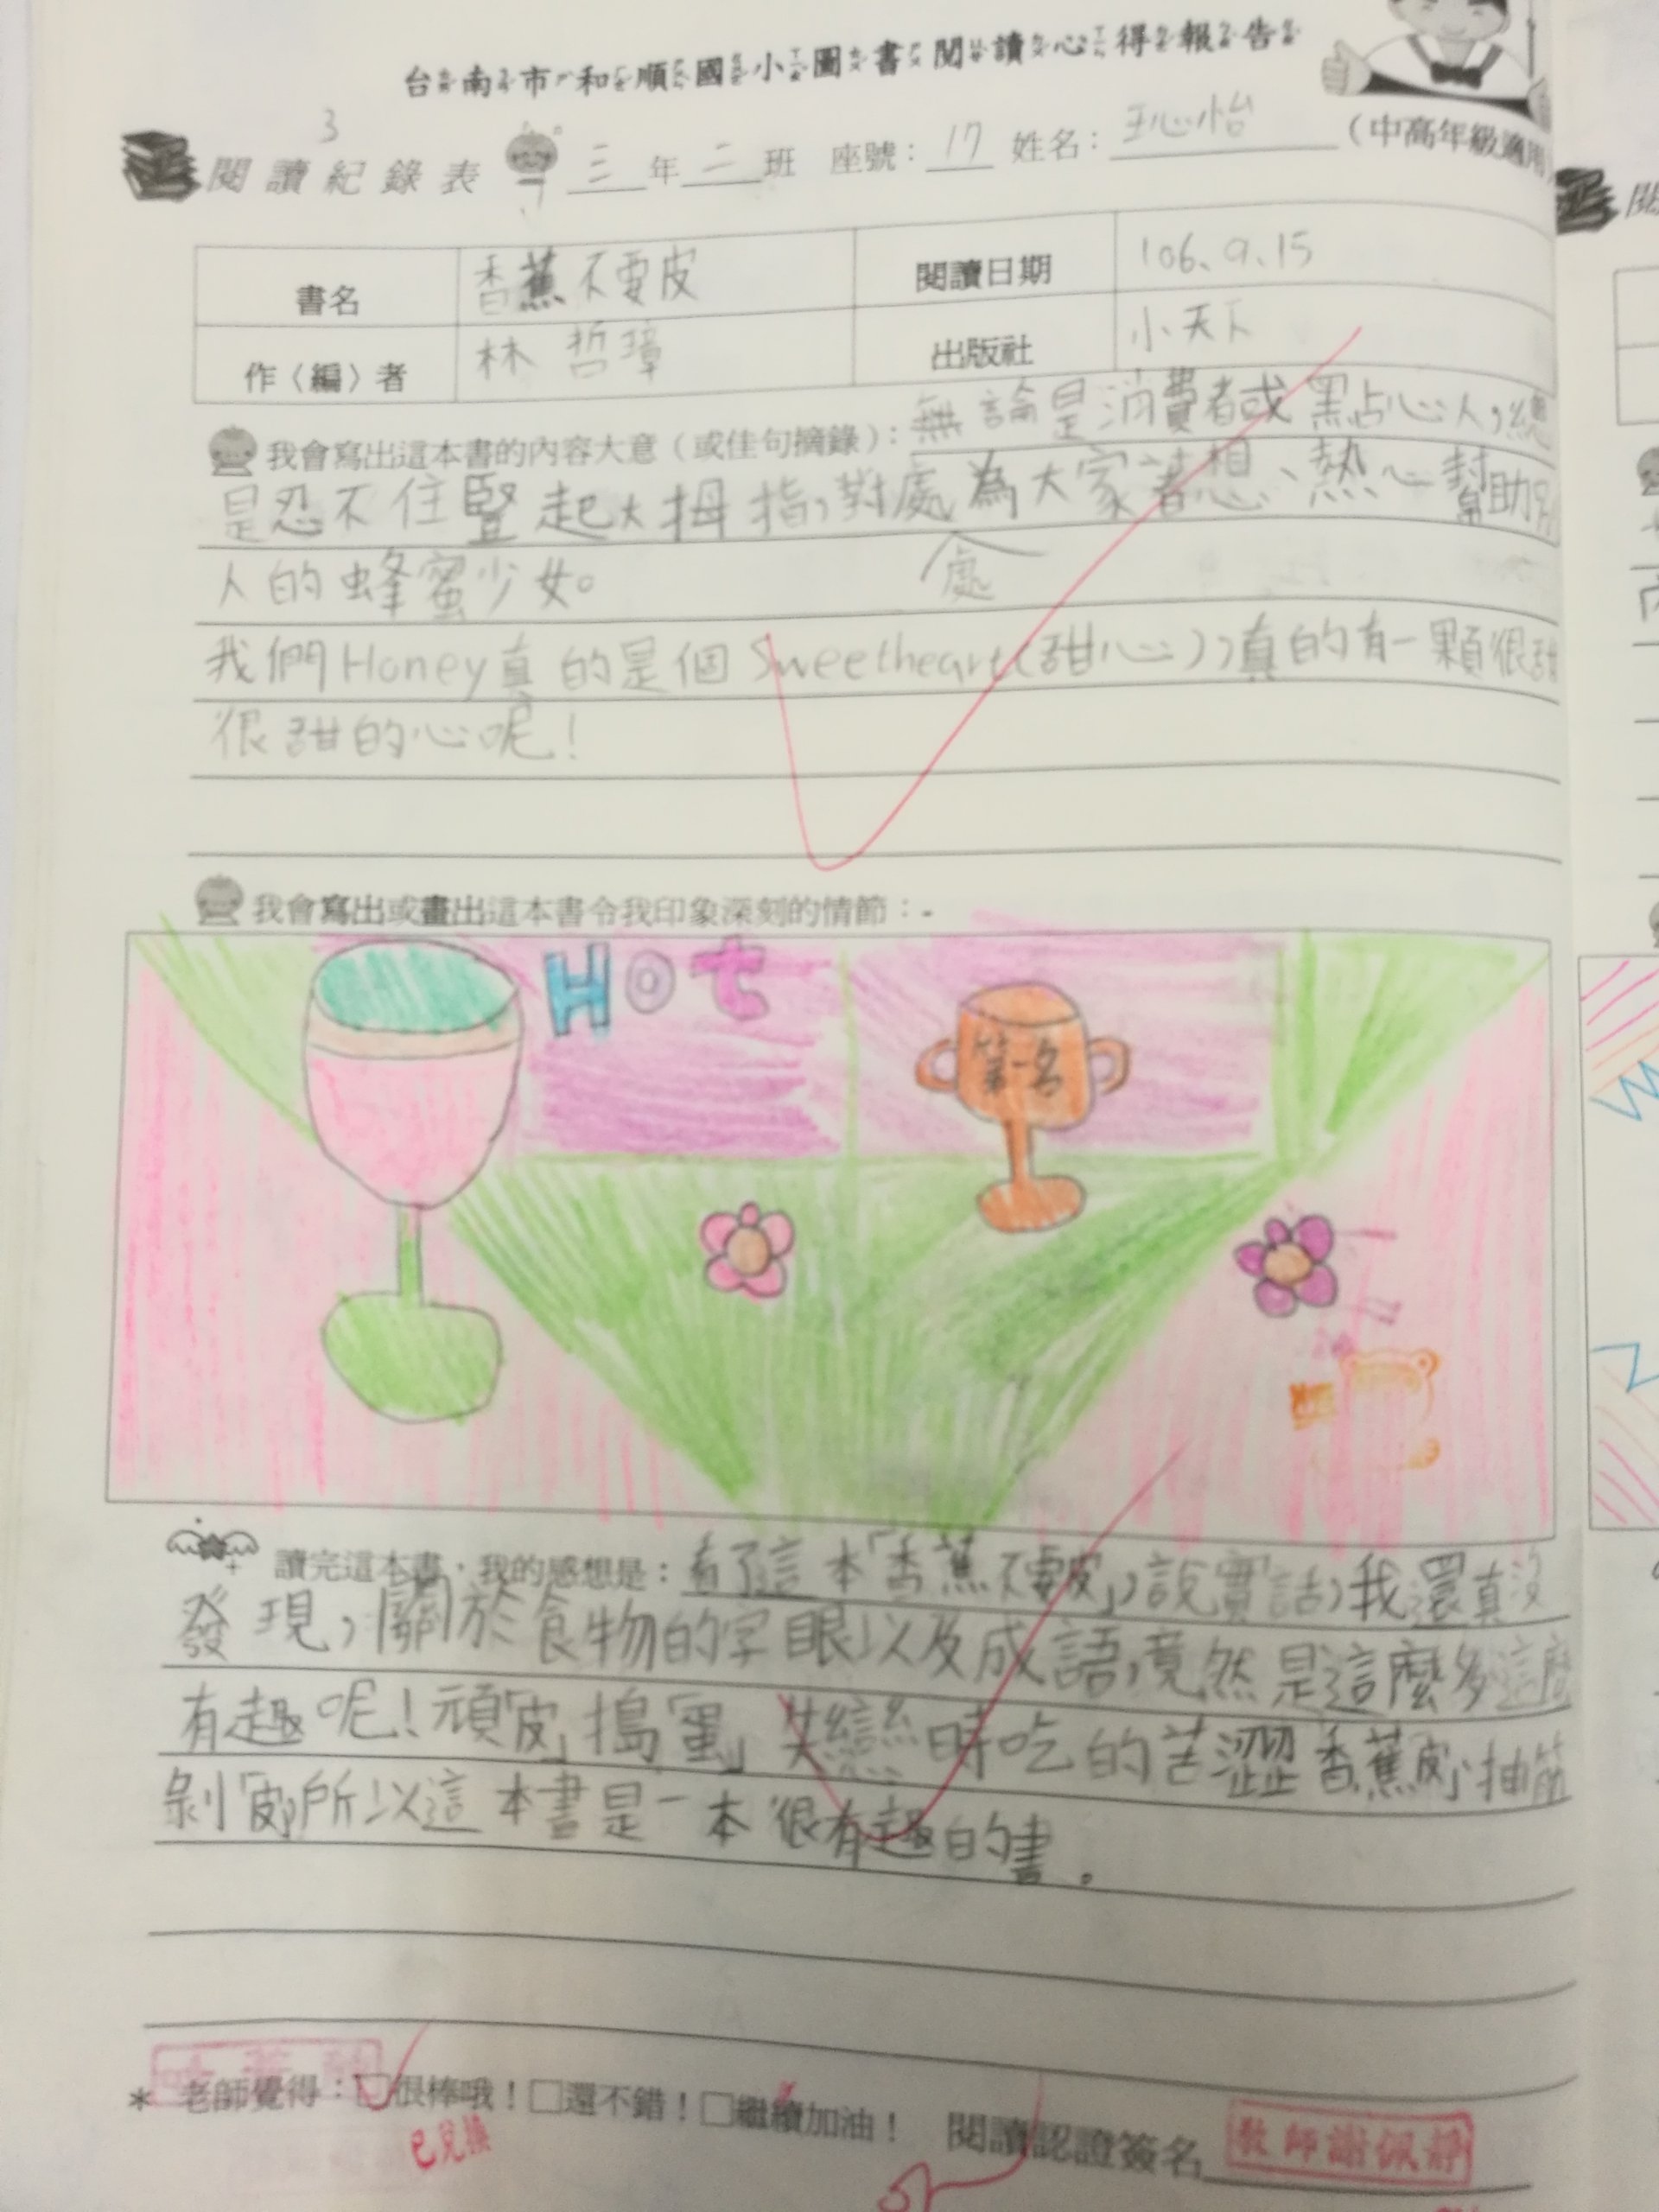 台南市和順國小圖書閱讀心得報告
3
閱讀紀錄表 三年二班 座號：17 姓名：王心怡 （中高年級適用）
書名 香蕉不要皮 閱讀日期 106、9、15
作〈編〉者 林哲璋 出版社 小天下
我會寫出這本書的內容大意（或佳句摘錄）：無論是消費者或點心人，總
是忍不住豎起大拇指，對處為大家著想、熱心幫助別
人的蜂蜜少女。 處
我們Honey真的是個Sweetheart(甜心)，真的有一顆很甜
很甜的心呢！
我會寫出或畫出這本書令我印象深刻的情節：
Hot
第一名
讀完這本書，我的感想是：看了這本「香蕉不要皮」，說實話，我還真沒
發現，關於食物的字眼以及成語，竟然是這麼多這麼
有趣呢！頑「皮」搗「蜜」失戀時吃的苦澀香蕉皮，抽筋
剝「皮」所以這本書是一本很有趣的書。
* 老師覺得：□很棒哦！□還不錯！□繼續加油！ 閱讀認證簽名 教師謝佩靜
已兌換